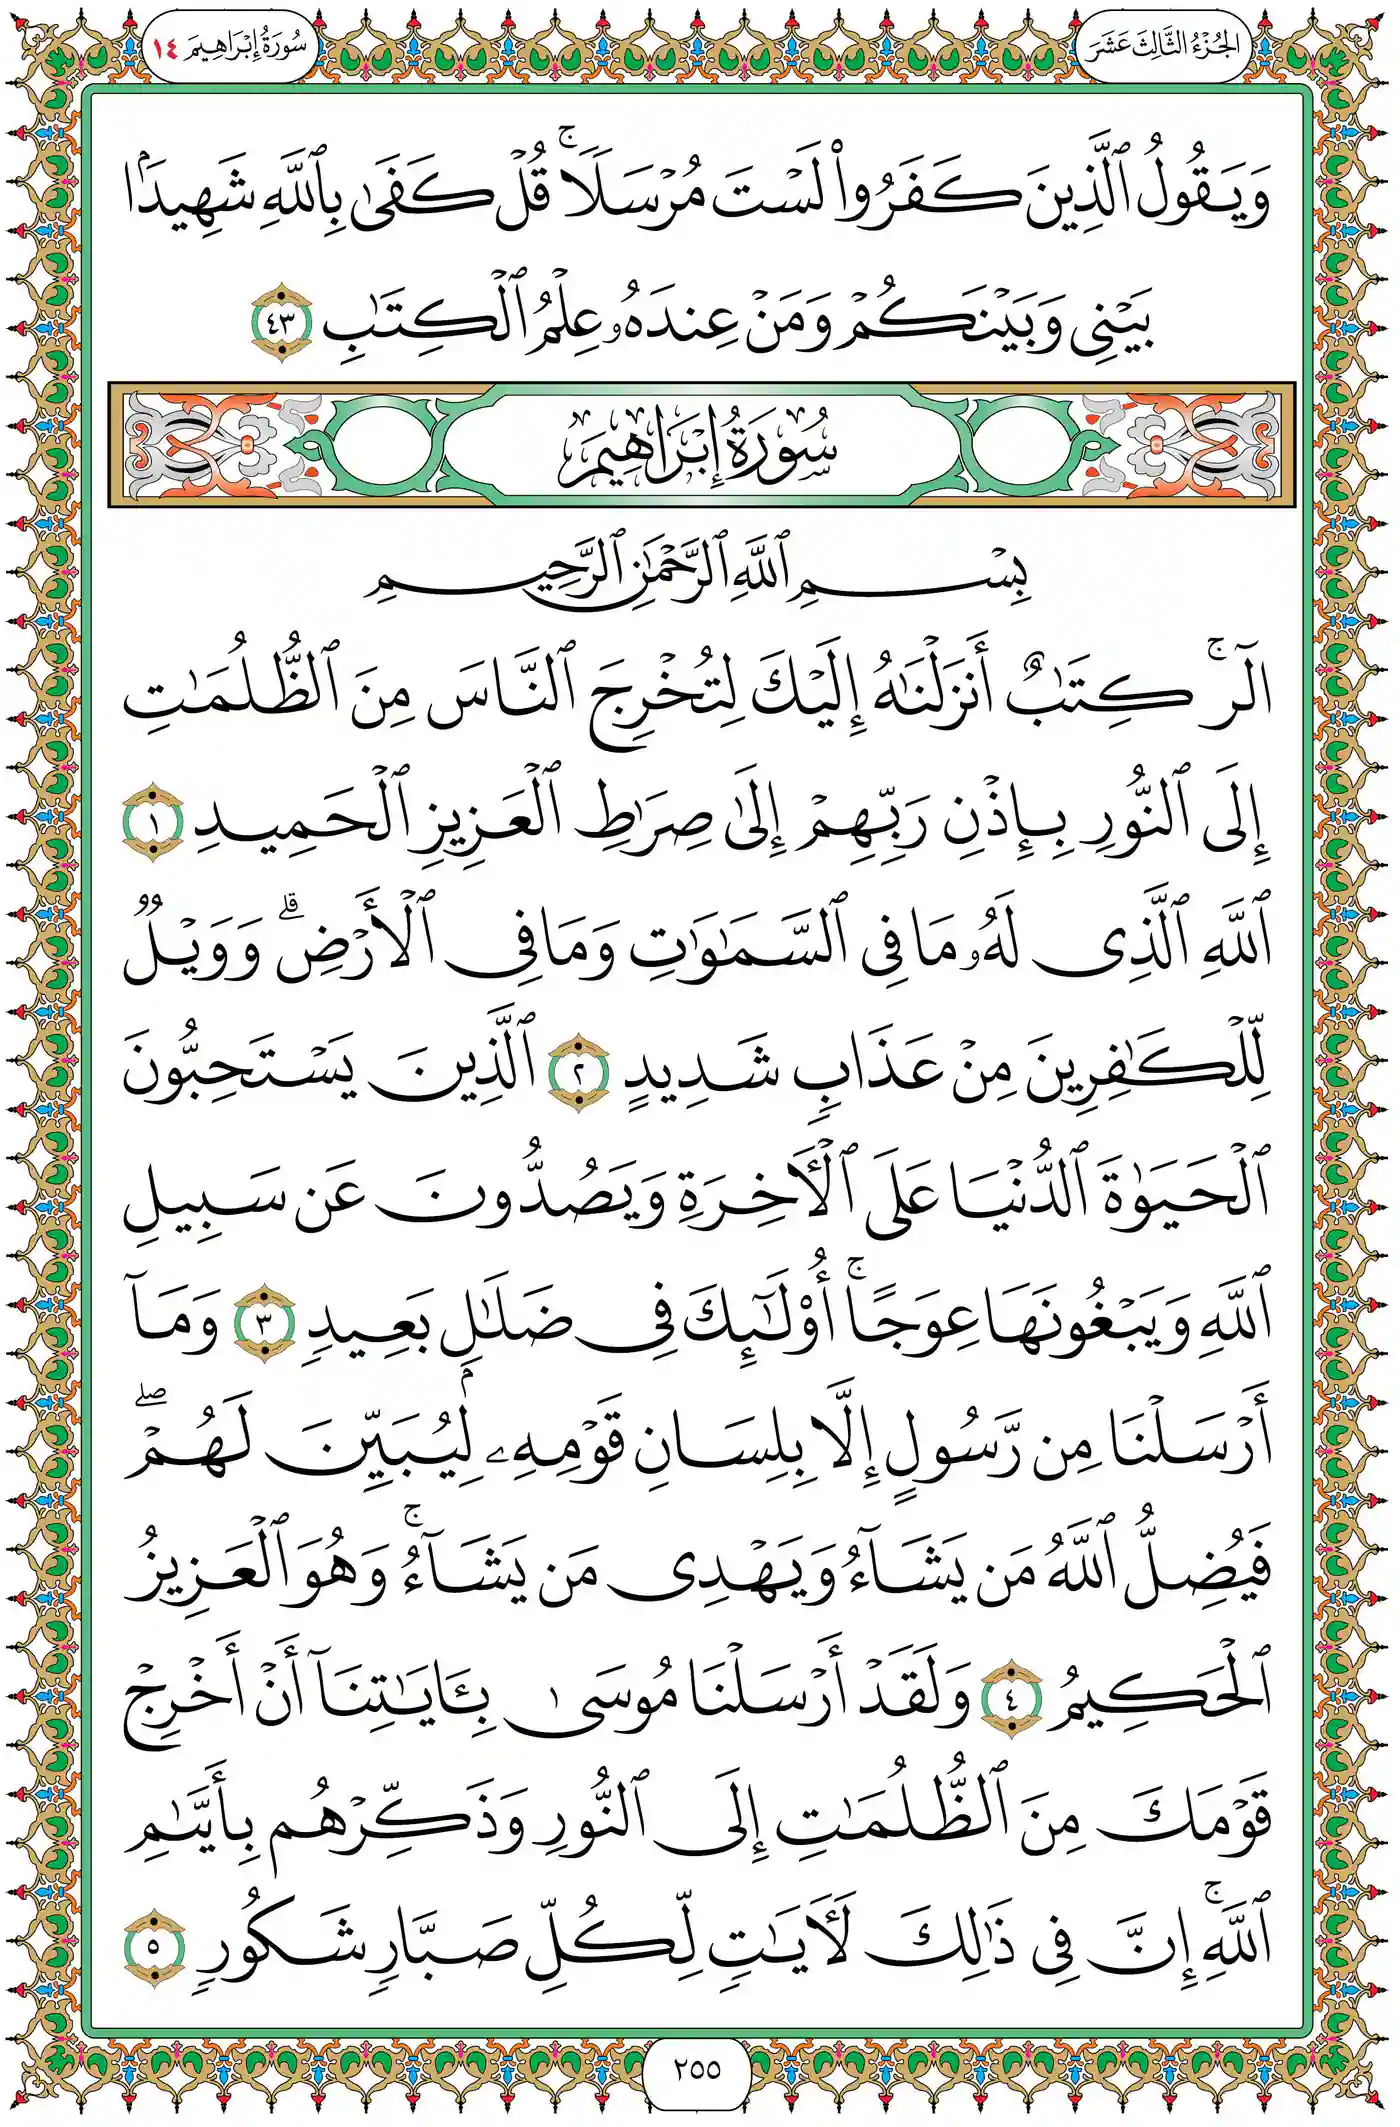 الجُزْءُ الثَّالِثَ عَشَرَ
سُورَةُ إِبْرَاهِيمَ ١٤
وَيَقُولُ ٱلَّذِينَ كَفَرُوا۟ لَسْتَ مُرْسَلًا ۚ قُلْ كَفَىٰ بِٱللَّهِ شَهِيدًۢا
بَيْنِى وَبَيْنَكُمْ وَمَنْ عِندَهُۥ عِلْمُ ٱلْكِتَٰبِ ٤٣
سُورَةُ إِبْرَاهِيمَ
بِسْمِ ٱللَّهِ ٱلرَّحْمَٰنِ ٱلرَّحِيمِ
الٓر ۚ كِتَٰبٌ أَنزَلْنَٰهُ إِلَيْكَ لِتُخْرِجَ ٱلنَّاسَ مِنَ ٱلظُّلُمَٰتِ
إِلَى ٱلنُّورِ بِإِذْنِ رَبِّهِمْ إِلَىٰ صِرَٰطِ ٱلْعَزِيزِ ٱلْحَمِيدِ ١
ٱللَّهِ ٱلَّذِى لَهُۥ مَا فِى ٱلسَّمَٰوَٰتِ وَمَا فِى ٱلْأَرْضِ ۗ وَوَيْلٌ
لِّلْكَٰفِرِينَ مِنْ عَذَابٍ شَدِيدٍ ٢ ٱلَّذِينَ يَسْتَحِبُّونَ
ٱلْحَيَوٰةَ ٱلدُّنْيَا عَلَى ٱلْءَاخِرَةِ وَيَصُدُّونَ عَن سَبِيلِ
ٱللَّهِ وَيَبْغُونَهَا عِوَجًا ۚ أُو۟لَٰٓئِكَ فِى ضَلَٰلٍۭ بَعِيدٍ ٣ وَمَآ
أَرْسَلْنَا مِن رَّسُولٍ إِلَّا بِلِسَانِ قَوْمِهِۦ لِيُبَيِّنَ لَهُمْ ۖ
فَيُضِلُّ ٱللَّهُ مَن يَشَآءُ وَيَهْدِى مَن يَشَآءُ ۚ وَهُوَ ٱلْعَزِيزُ
ٱلْحَكِيمُ ٤ وَلَقَدْ أَرْسَلْنَا مُوسَىٰ بِـَٔايَٰتِنَآ أَنْ أَخْرِجْ
قَوْمَكَ مِنَ ٱلظُّلُمَٰتِ إِلَى ٱلنُّورِ وَذَكِّرْهُم بِأَيَّىٰمِ
ٱللَّهِ ۚ إِنَّ فِى ذَٰلِكَ لَءَايَٰتٍ لِّكُلِّ صَبَّارٍ شَكُورٍ ٥
٢٥٥